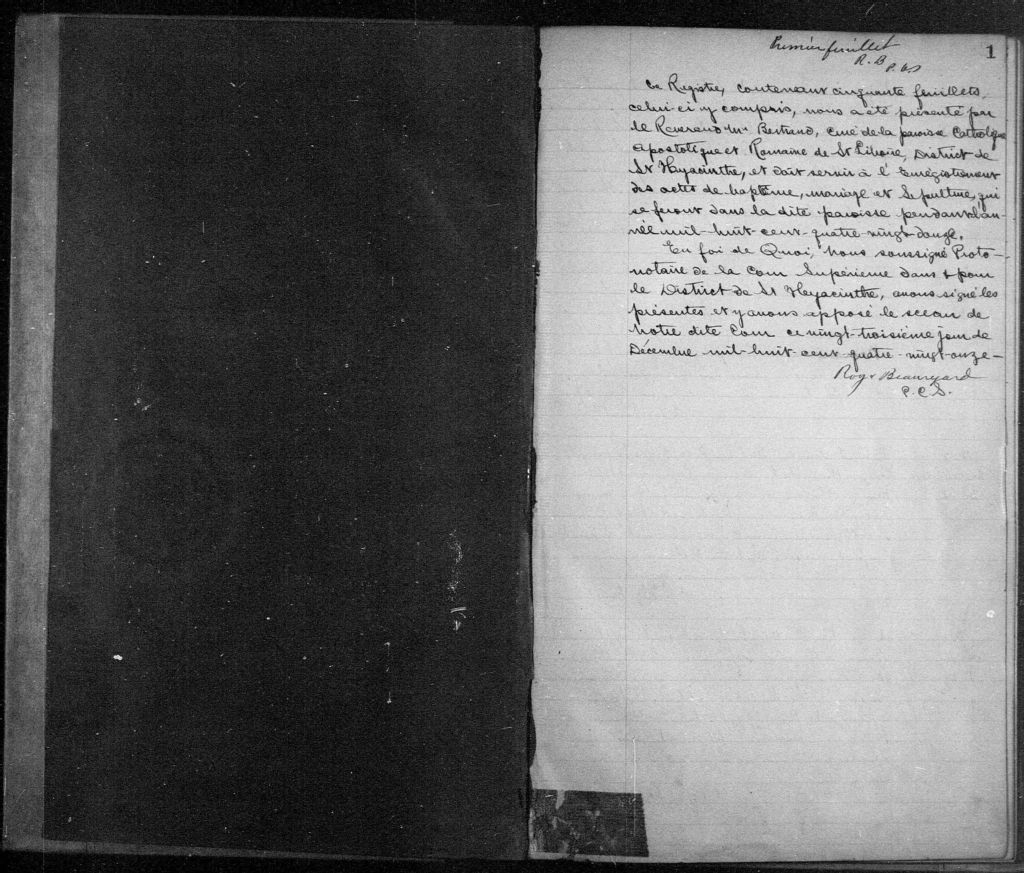 Premier feuillet
R. B
P.C.S
1
Ce Registre, contenant cinquante feuillets,
celui-ci y compris, nous a été présenté par
le Reverend Mr Bertrand, curé de la paroisse Catholique
Apostolique et Romaine de St Liboire, District de
St Hyacinthe, et doit servir à l'Enregistrement
des actes de baptême, mariage et Sepulture, qui
se feront dans la dite paroisse pendant l'an-
née mil-huit-cent-quatre-vingt-douze.
En foi de Quoi, Nous soussigné Proto-
notaire de la Cour Supérieure dans & pour
le District de St Hyacinthe, avons signé les
présentes et y avons apposé le sceau de
Notre dite Cour ce vingt-troisième jour de
Décembre mil-huit-cent-quatre-vingt-onze-
Roy & Beauregard
P.C.S.